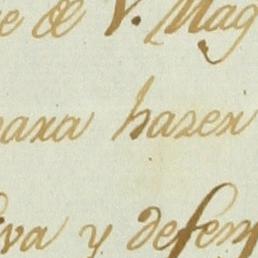 e de V. Mag
para hazer
iva y defen